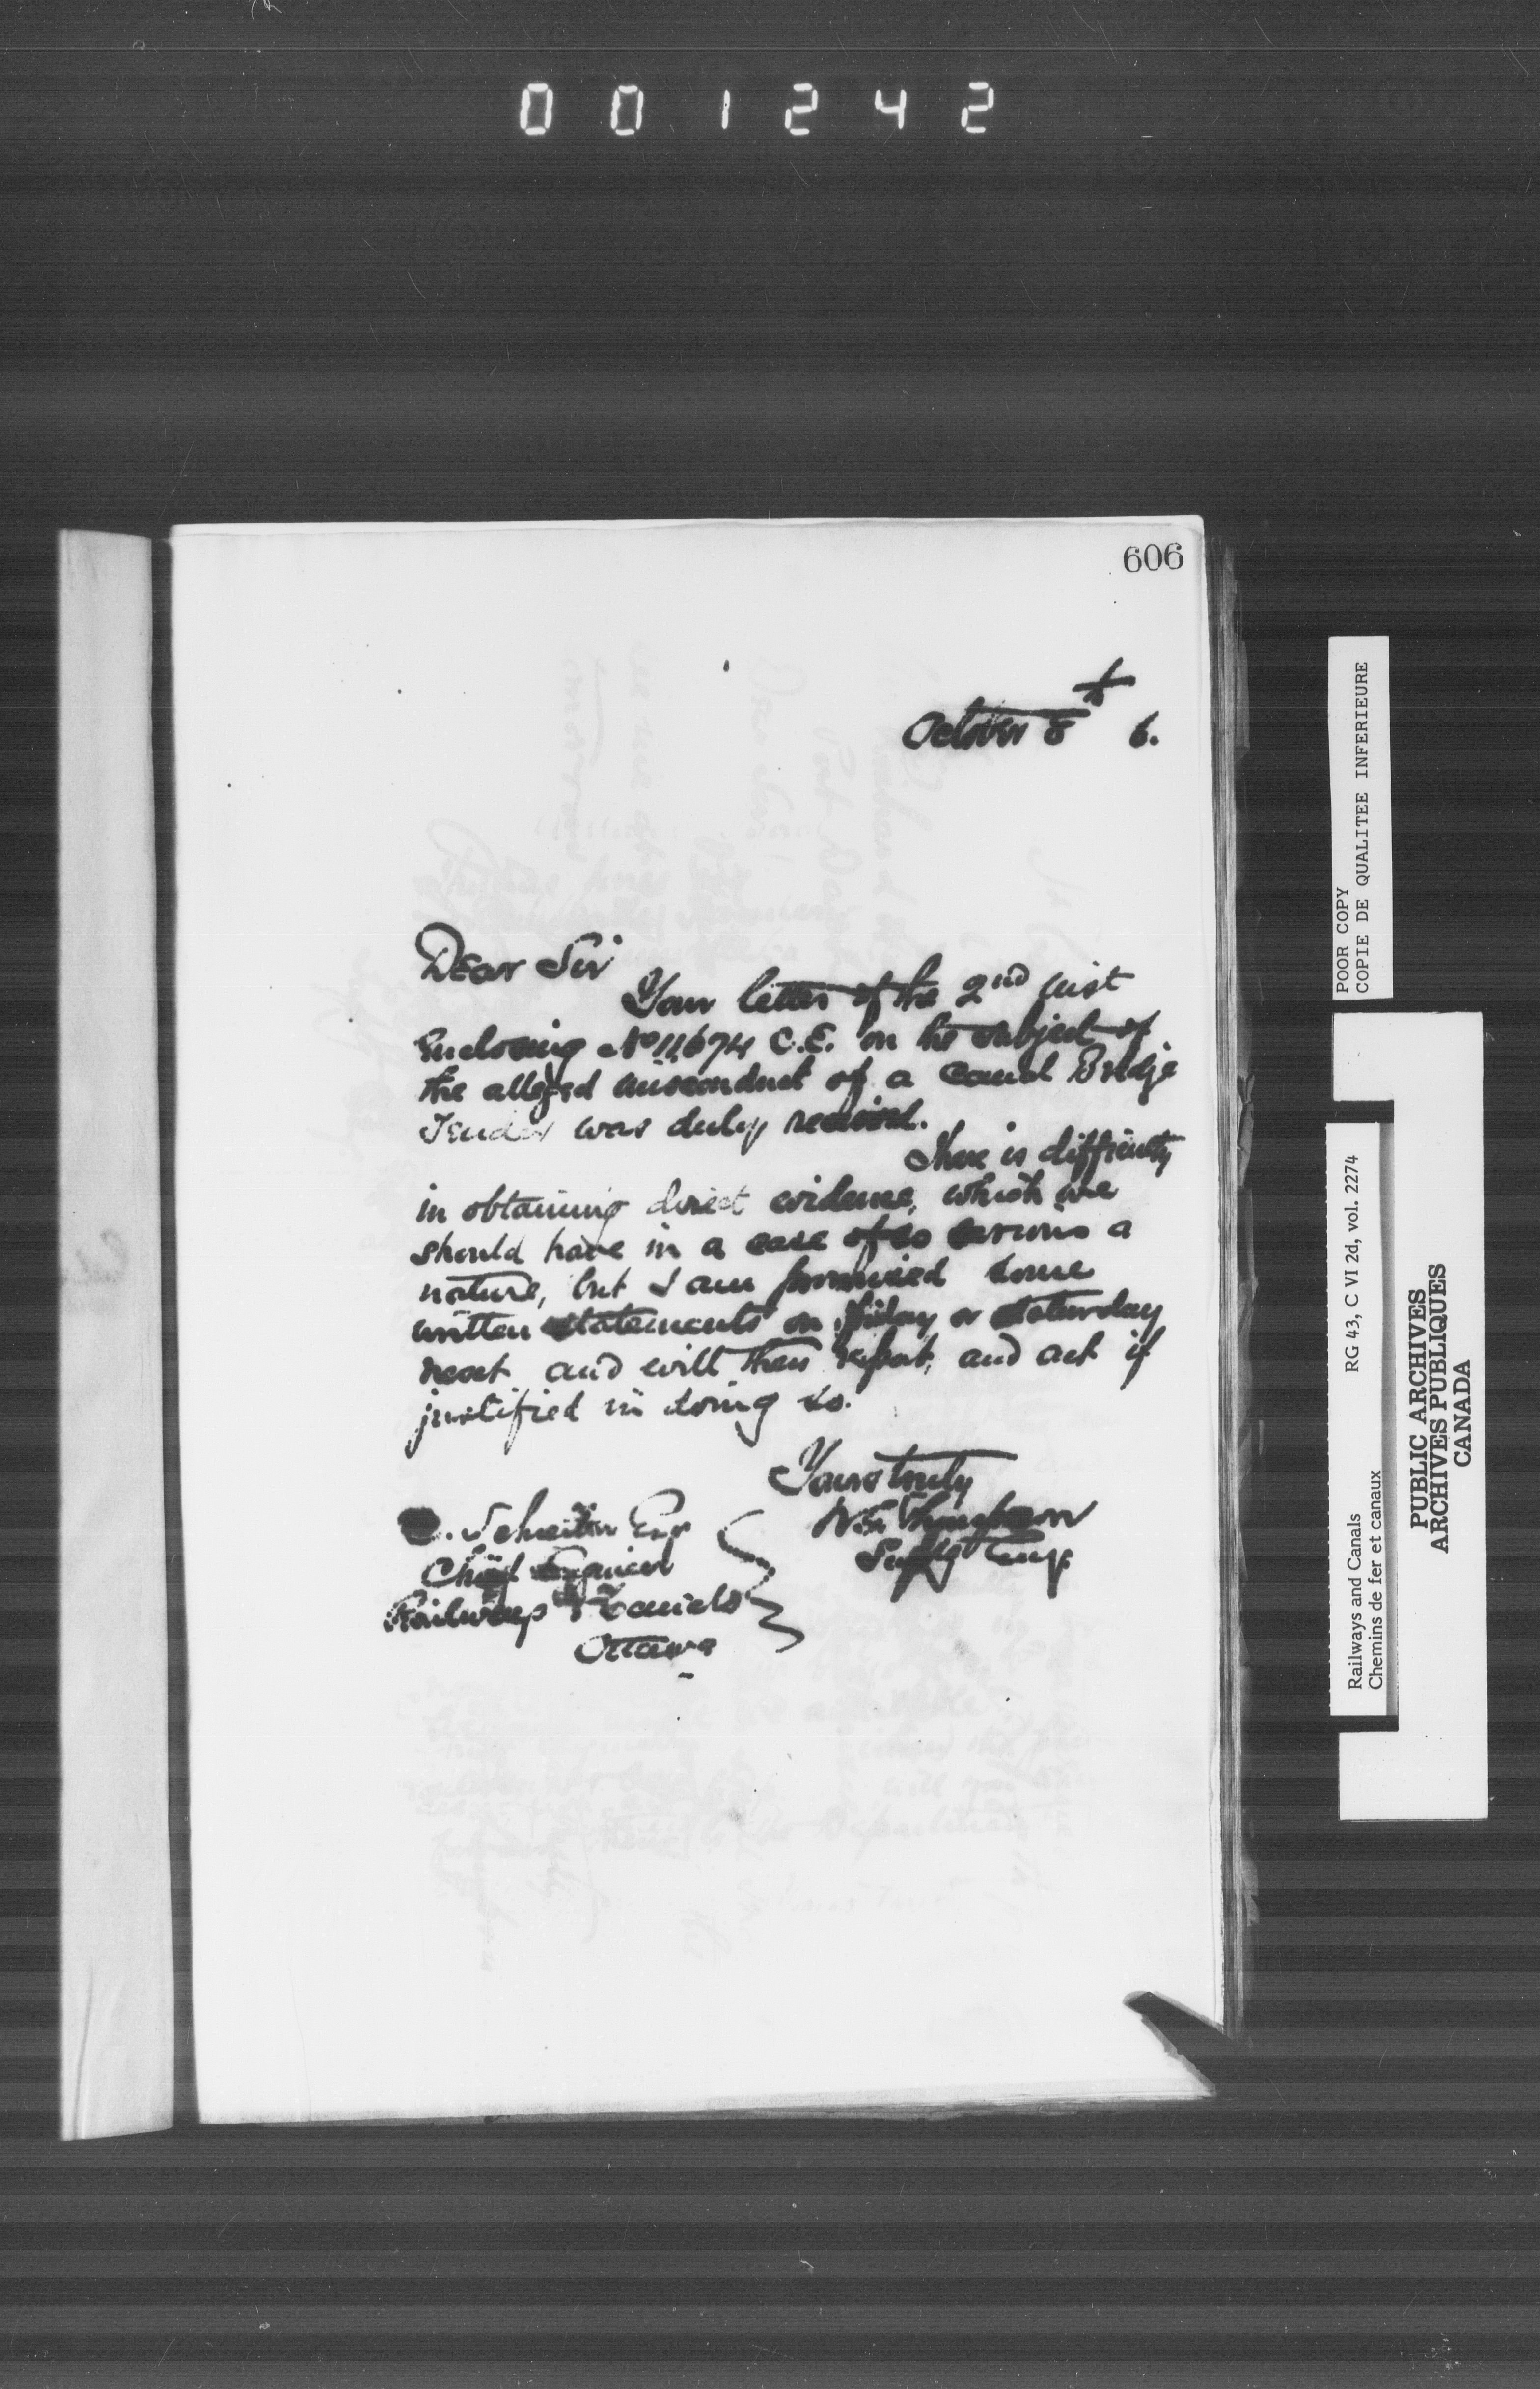 001242
606
October 8th 6.
Dear Sir
Your letter of the 2nd inst
Enclosing No 11674 C.E. on the subject of
the alleged misconduct of a Canal Bridge
Tender was duly received.
There is difficulty
in obtaining direct evidence, which we
should have in a case of so serious a
nature, but I am promised some
written statements on Friday or Saturday
next and will then report, and act if
justified in doing so.
Yours truly
Thompson
Supt g Eng.
. Schreiber Esq
Chief Engineer
Railways & Canals
Ottawa
POOR COPY
COPIE DE QUALITEE INFERIEURE
Railways and Canals RG 43, C VI 2d, vol. 2274
Chemins de fer et canaux
PUBLIC ARCHIVES
ARCHIVES PUBLIQUES
CANADA